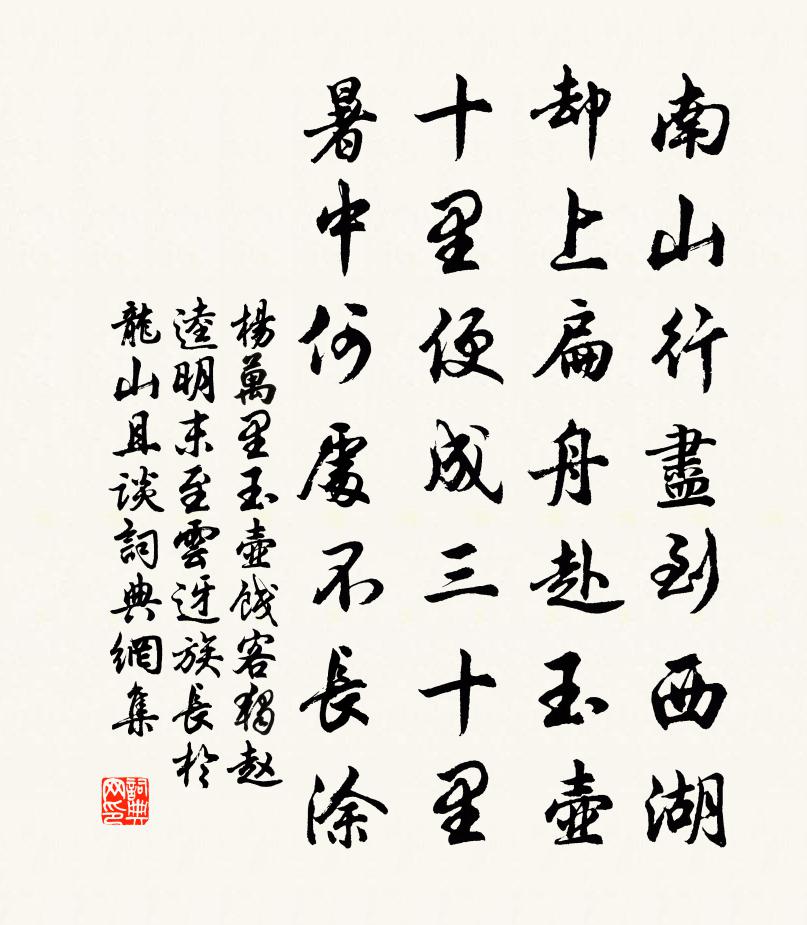 南山行盡到西湖
却上扁舟赴玉壺
十里便成三十里
暑中何處不長涂
楊萬里玉壺餞客獨趙
逵明末至雲迓族長於
龍山且談詞典網集
詞典网印